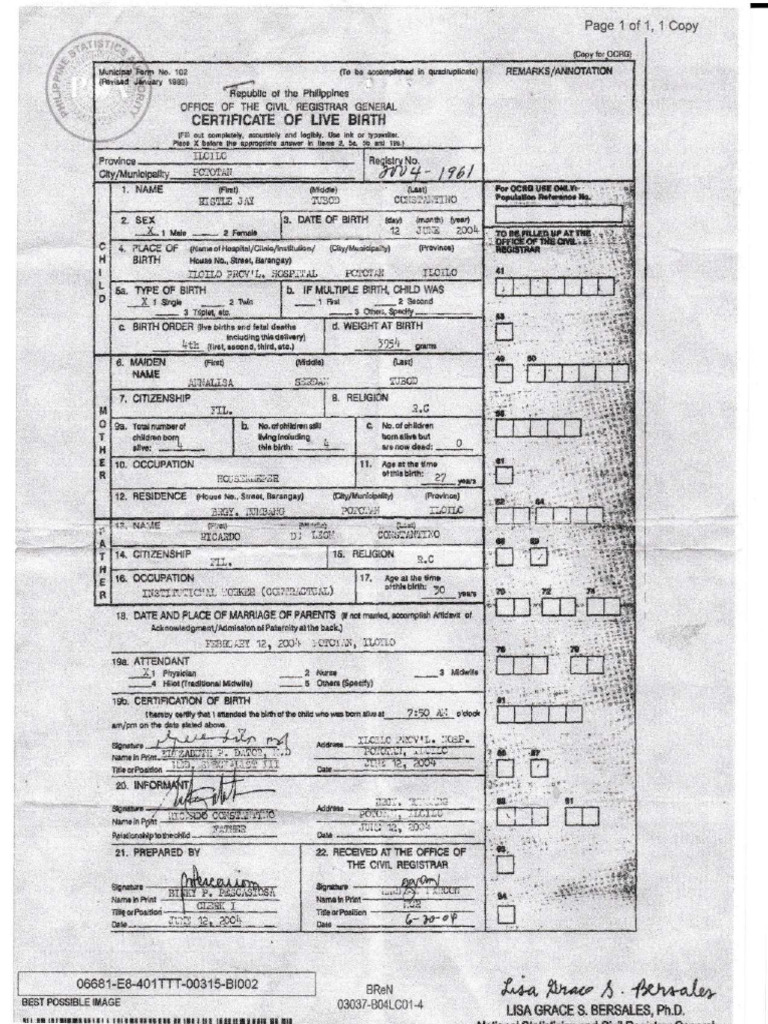 Page 1 of 1, 1 Copy
(Copy for OCRG)
PHILIPPINE STATISTICS AUTHORITY
Municipal Form No. 102 (To be accomplished in quadruplicate) REMARKS/ANNOTATION
(Revised January 1993)
Republic of the Philippines
OFFICE OF THE CIVIL REGISTRAR GENERAL
CERTIFICATE OF LIVE BIRTH
(Fill out completely, accurately and legibly. Use ink or typewriter.
Place X before the appropriate answer in Items 2, 5a, 5b and 19a.)
Province ILOILO Registry No.
City/Municipality POTOTAN 2004-1961
1. NAME (First) (Middle) (Last) For OCRG USE ONLY:
Population Reference No.
KISTLE JAY TUBOD CONSTANTINO
2. SEX 3. DATE OF BIRTH (day) (month) (year)
X 1 Male 2 Female 12 JUNE 2004
TO BE FILLED UP AT THE
OFFICE OF THE CIVIL
REGISTRAR
CHILD
4. PLACE OF (Name of Hospital/Clinic/Institution/ (City/Municipality) (Province)
BIRTH House No., Street, Barangay)
ILOILO PROV'L. HOSPITAL POTOTAN ILOILO
41
5a. TYPE OF BIRTH b. IF MULTIPLE BIRTH, CHILD WAS
X 1 Single 2 Twin 1 First 2 Second
3 Triplet, etc. 3 Others, Specify
c. BIRTH ORDER (live births and fetal deaths d. WEIGHT AT BIRTH
including this delivery)
4th (first, second, third, etc.) 3954 grams
6. MAIDEN (First) (Middle) (Last)
NAME
49 50
ANNALISA TUBOD
MOTHER
7. CITIZENSHIP 8. RELIGION
FIL. R.C
56
9a. Total number of b. No. of children still c. No. of children
children born living including born alive but
alive: 4 this birth: 4 are now dead: 0
10. OCCUPATION 11. Age at the time
HOUSEKEEPER of this birth: 27 years
61
12. RESIDENCE (House No., Street, Barangay) (City/Municipality) (Province)
BRGY. POTOTAN ILOILO
62 64
FATHER
13. NAME (First) (Middle) (Last)
RICARDO DE LEON CONSTANTINO
14. CITIZENSHIP 15. RELIGION
FIL. R.C
68 69
16. OCCUPATION 17. Age at the time
INSTITUTIONAL WORKER (CONTRACTUAL) of this birth: 30 years
70 72 74
18. DATE AND PLACE OF MARRIAGE OF PARENTS (If not married, accomplish Affidavit of
Acknowledgment/Admission of Paternity at the back.)
FEBRUARY 12, 2004 POTOTAN, ILOILO
76 79
19a. ATTENDANT
X 1 Physician 2 Nurse 3 Midwife
4 Hilot (Traditional Midwife) 5 Others (Specify)
19b. CERTIFICATION OF BIRTH
I hereby certify that I attended the birth of the child who was born alive at 7:50 AM o'clock
am/pm on the date stated above.
81
Signature Address ILOILO PROV'L. HOSP.
Name in Print ELIZABETH P. M.D POTOTAN, ILOILO
Title or Position Date JUNE 12, 2004
86 87
20. INFORMANT
Signature Address BRGY.
Name in Print RICARDO CONSTANTINO POTOTAN, ILOILO
Relationship to the child FATHER Date JUNE 12, 2004
88 91
21. PREPARED BY 22. RECEIVED AT THE OFFICE OF
THE CIVIL REGISTRAR
93
Signature Signature
Name in Print P. PESCASIOSA Name in Print
Title or Position CLERK I Title or Position
Date JUNE 12, 2004 Date 6-20-04
94
06681-E8-401TTT-00315-BI002
BEST POSSIBLE IMAGE
BReN
03037-B04LC01-4
Lisa Grace S. Bersales
LISA GRACE S. BERSALES, Ph.D.